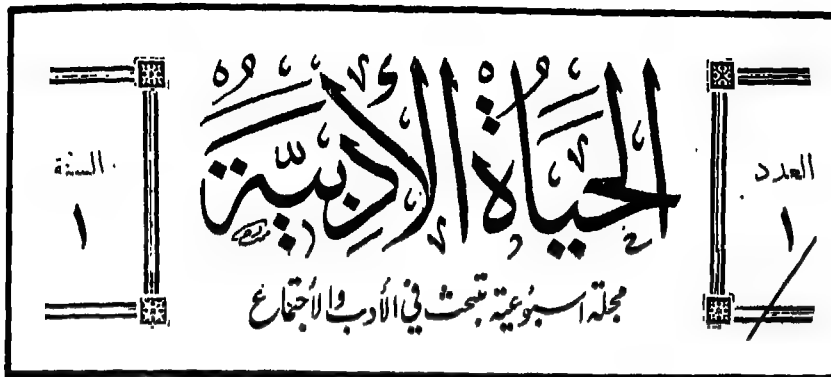 العدد
١
الحَيَاةُ الأَدَبِيَّةُ
مجلة اسبوعية تبحث في الأدب والأجتماع
السنة
١